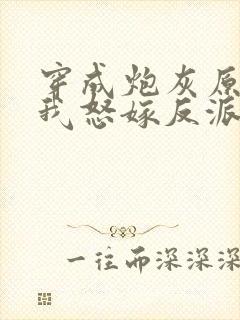 穿成炮灰原
我怒嫁反派
一往而深深深